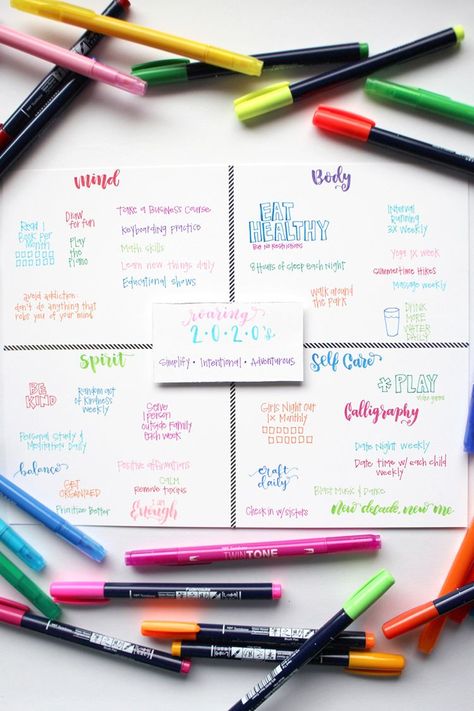 Mind
Read 1
Book per
Month
Draw
for fun
Play
the
Piano
Take a Business Course
Keyboarding practice
Math skills
Learn new things daily
Educational shows
avoid addiction
don't do anything that
robs you of your mind
Body
EAT
HEALTHY
8 Hours of sleep each night
Walk around
the park
Interval
Running
3x weekly
Yoga 1x week
Summertime Hikes
Massage weekly
DRINK
MORE
WATER
DAILY
roaring
2•0•2•0's
Simplify • Intentional • Adventurous
Spirit
BE
KIND
Random act
of Kindness
weekly
Serve
1 person
outside family
each week
Personal Study &
Meditate Daily
balance
GET
ORGANIZED
Prioritize Better
Positive affirmations
CALM
Remove toxins
I am
Enough
Self Care
*PLAY
video games
Girls Night Out
1x Monthly
Calligraphy
Date Night weekly
Date time w/ each child
weekly
craft
daily
Blast Music & Dance
Check in w/ sisters
New decade, new me
TWINTONE